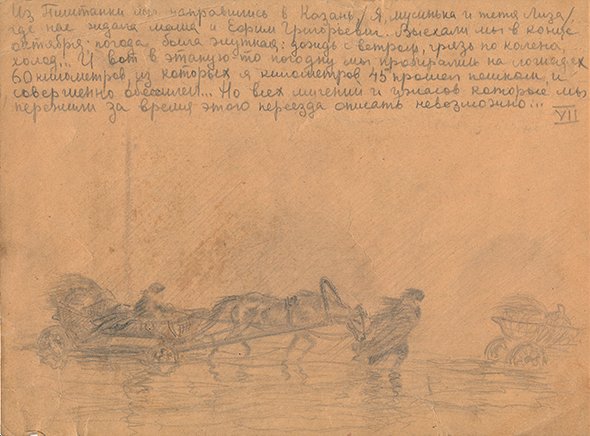 Из Пиштанки мы направились в Казань /Я, мусинька и тетя Лиза/
где нас ждала мама и Ефим Григорьевич. Выехали мы в конце
октября: погода была жуткая: дождь с ветром, грязь по колена,
холод... И вот в этакую то погодку мы пропёрли на лошадях
60 километров, из которых я километров 45 прошел пешком, и
совершенно обессилел... Но всех мучений и ужасов которые мы
пережили за время этого переезда описать невозможно!..
VII